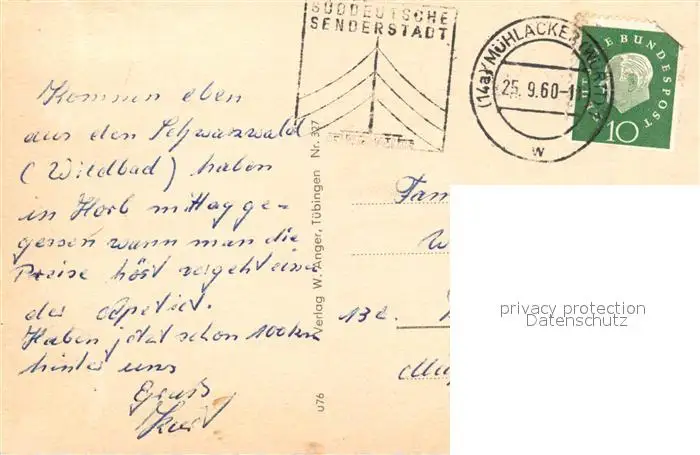 SÜDDEUTSCHE
SENDERSTADT
(14a) MÜHLACKER
25. 9. 60-1
w
DEUTSCHE BUNDESPOST
10
Kommen eben
aus dem Schwarzwald
(Wildbad) haben
in Horb mittagge-
gessen wann man die
Preise höst vergeht einem
der appetiet.
Haben jetzt schon 100 km
hinter uns
Gruß
Kurt
Verlag W. Anger, Tübingen Nr. 327
u76
Fam
W
13a.
privacy protection
Datenschutz